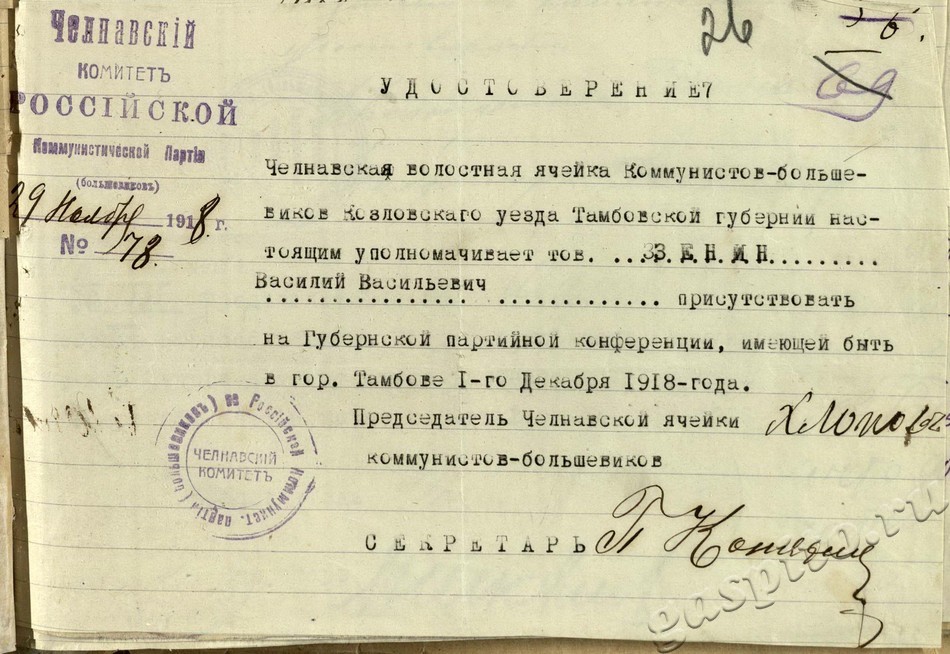 Челнавскій
КОМИТЕТЪ
РОССІЙСКОЙ
Коммунистической Партіи
(большевиковъ)
29 Ноября 1918 г.
№ 178.
26
6.
69
УДОСТОВЕРЕНИЕ7
Челнавская волостная ячейка Коммунистов-больше-
виков Козловскаго уезда Тамбовской губернии нас-
тоящим уполномачивает тов. ...ЗЗ.Е.Н.И.Н.........
Василий Васильевич
................ ............. присутствовать
на Губернской партийной конференции, имеющей быть
в гор. Тамбове I-го Декабря 1918-года.
Председатель Челнавской ячейки
коммунистов-большевиков
СЕКРЕТАРЬ П
Россійской Коммунист. партіи (большевиковъ)
ЧЕЛНАВСКІЙ
КОМИТЕТЪ
gaspito.ru